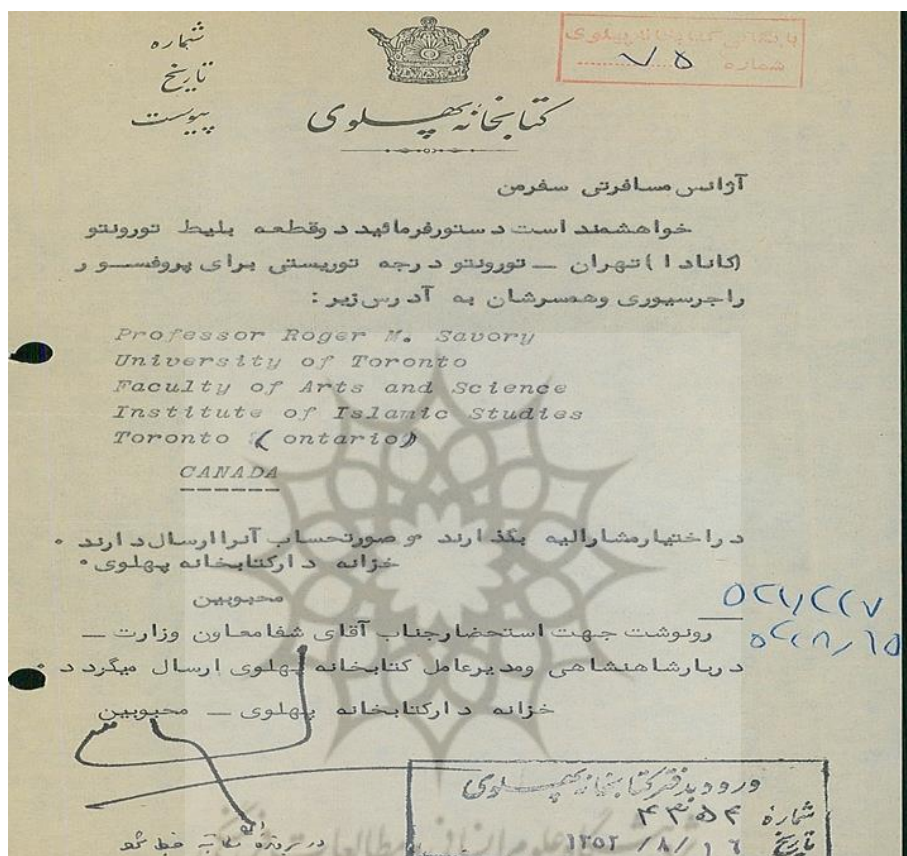 شماره
تاریخ
پیوست
کتابخانه پهلوی
بایگانی کتابخانه پهلوی
شماره ۷۵
آژانس مسافرتی سفرمن
خواهشمند است دستورفرمائید دوقطعه بلیط تورونتو
(کانادا) تهران – تورونتو درجه توریستی برای پروفسور
راجرسیوری وهمسرشان به آدرس زیر :
Professor Roger M. Savory
University of Toronto
Faculty of Arts and Science
Institute of Islamic Studies
Toronto (ontario)
CANADA
دراختیارمشارالیه بگذارند و صورتحساب آنرا ارسال دارند .
خزانه دارکتابخانه پهلوی .
محبوبین
رونوشت جهت استحضارجناب آقای شفامعاون وزارت –
دربارشاهنشاهی ومدیرعامل کتابخانه پهلوی ارسال میگردد .
خزانه دارکتابخانه پهلوی – محبوبین
ورود بدفتر کتابخانه پهلوی
شماره ۴۳۵۴
تاریخ ۱۳۵۲ /۸/ ۱۶